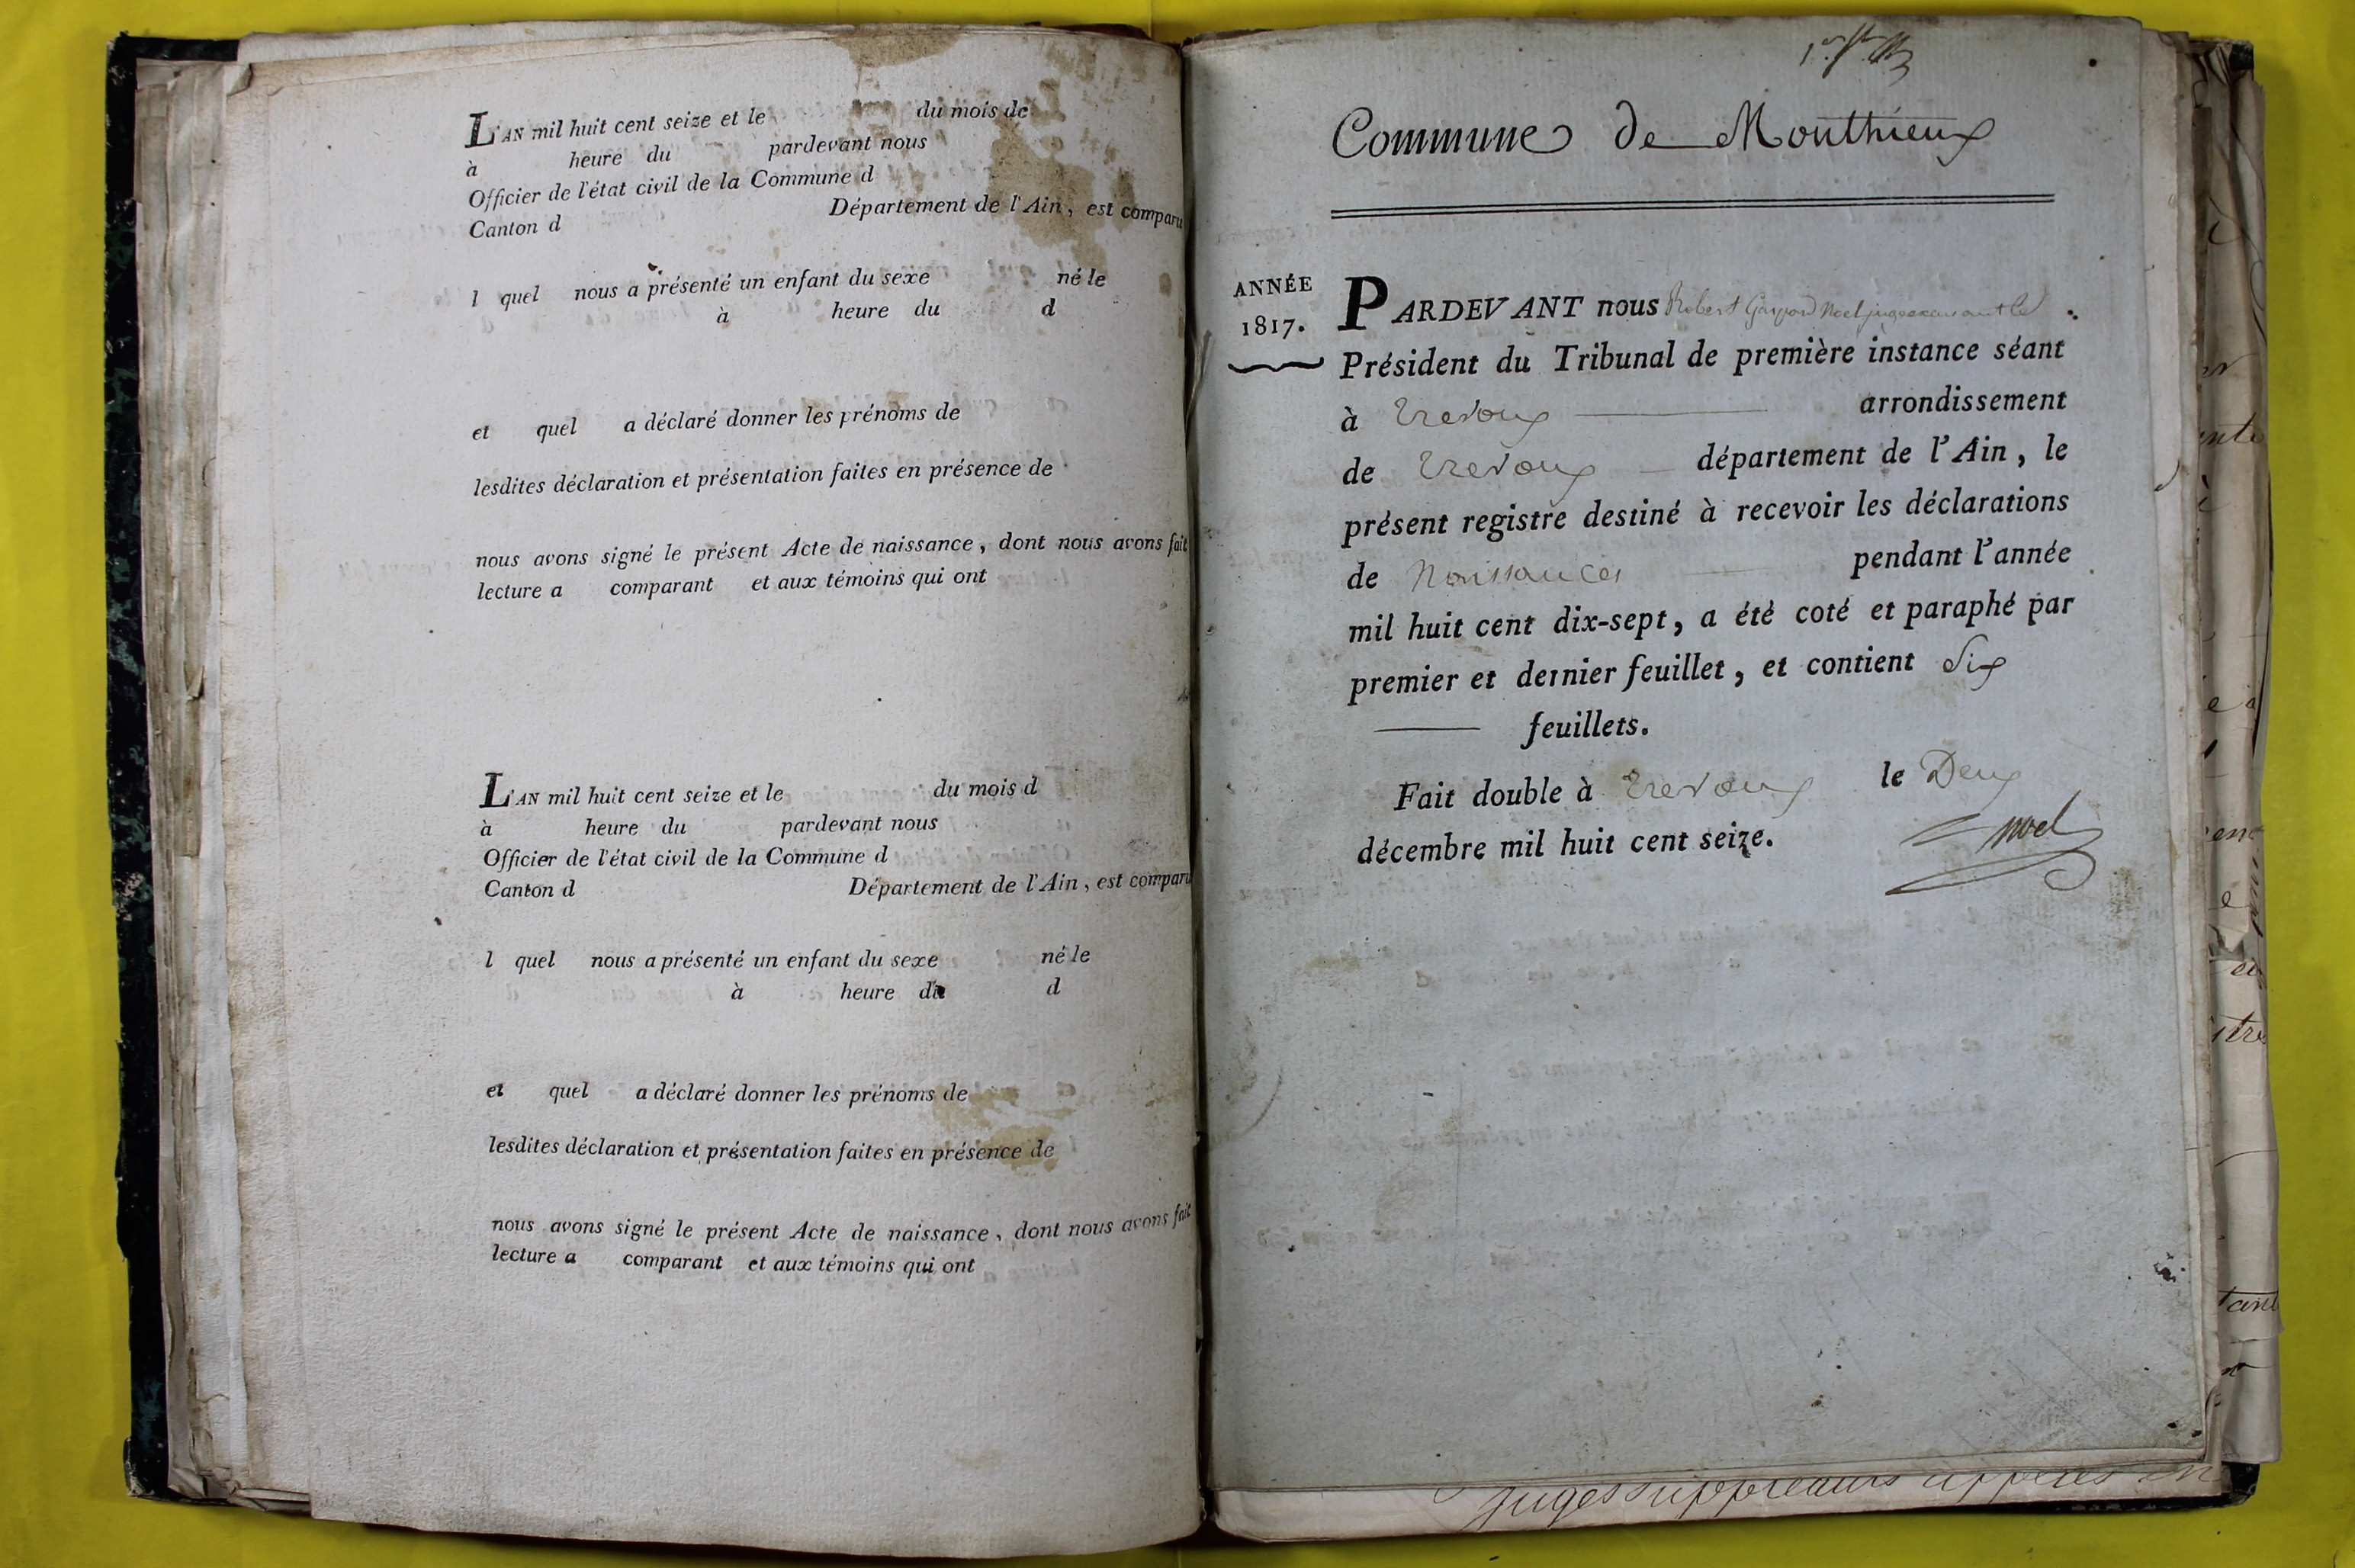 L'AN mil huit cent seize et le du mois de
à heure du pardevant nous
Officier de l'état civil de la Commune d
Canton d Département de l'Ain, est comparu
l quel nous a présenté un enfant du sexe né le
à heure du d
et quel a déclaré donner les prénoms de
lesdites déclaration et présentation faites en présence de
nous avons signé le présent Acte de naissance, dont nous avons fait
lecture a comparant et aux témoins qui ont
L'AN mil huit cent seize et le du mois d
à heure du pardevant nous
Officier de l'état civil de la Commune d
Canton d Département de l'Ain, est comparu
l quel nous a présenté un enfant du sexe né le
à heure du d
et quel a déclaré donner les prénoms de
lesdites déclaration et présentation faites en présence de
nous avons signé le présent Acte de naissance, dont nous avons fait
lecture a comparant et aux témoins qui ont
Commune de Monthieux
ANNÉE
1817.
PARDEVANT nous Robert Gaspard Noel juge exerçant le
Président du Tribunal de première instance séant
à Trevoux arrondissement
de Trevoux département de l'Ain, le
présent registre destiné à recevoir les déclarations
de Naissances pendant l'année
mil huit cent dix-sept, a été coté et paraphé par
premier et dernier feuillet, et contient Six
feuillets.
Fait double à Trevoux le Deux
décembre mil huit cent seize.
Noel
juges suppleants